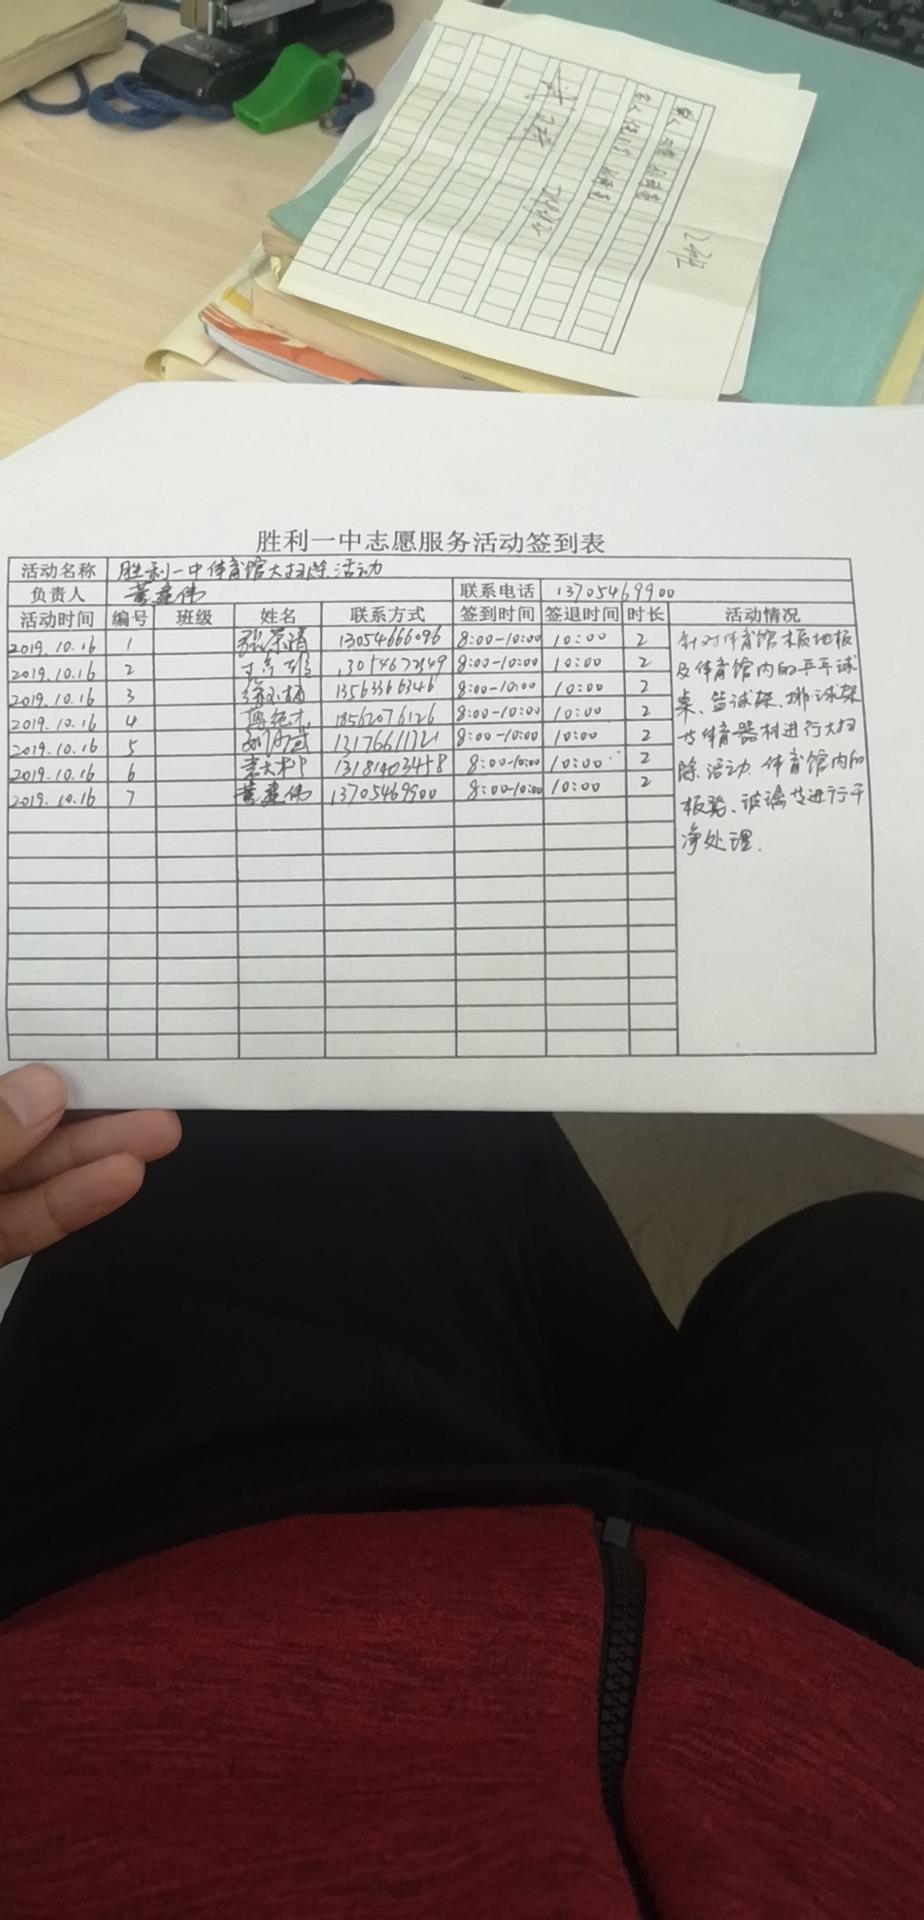 胜利一中志愿服务活动签到表
活动名称 胜利一中体育馆大扫除活动
负责人 联系电话 13705469900
活动时间 编号 班级 姓名 联系方式 签到时间 签退时间 时长 活动情况
2019.10.16 1 13054666096 8:00-10:00 10:00 2
2019.10.16 2 13054672149 8:00-10:00 10:00 2
2019.10.16 3 13563366346 8:00-10:00 10:00 2
2019.10.16 4 18562076126 8:00-10:00 10:00 2
2019.10.16 5 8:00-10:00 10:00 2
2019.10.16 6 13181403458 8:00-10:00 10:00 2
2019.10.16 7 13705469900 8:00-10:00 10:00 2
针对体育馆木质地板
及体育馆内的乒乓球
桌、篮球架、排球架
等体育器材进行大扫
除活动.体育馆内的
板凳、玻璃等进行干
净处理.